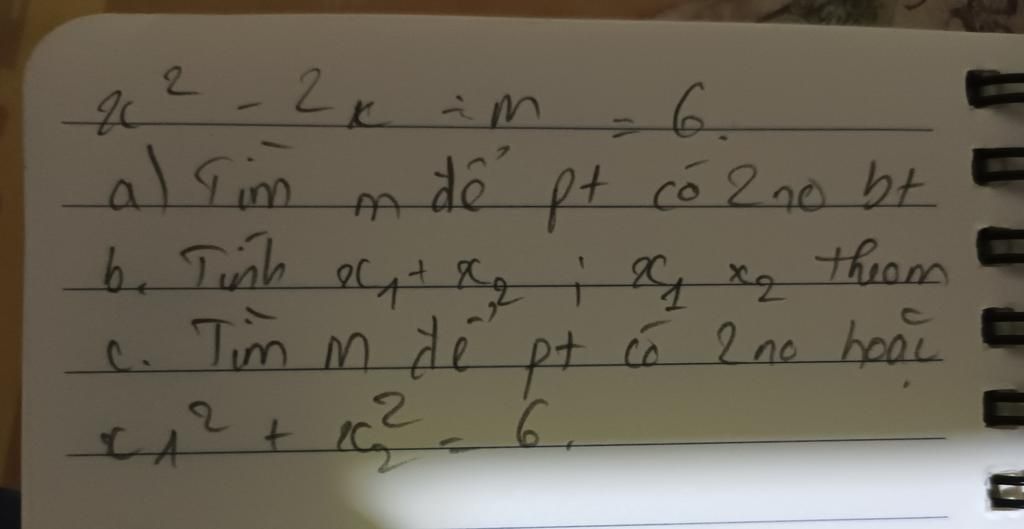 x² - 2x ÷ m = 6.
a) Tìm m để pt có 2 no bt
b. Tính x₁ + x₂ ; x₁ x₂ theom
c. Tìm m để pt có 2 no hoặc
x₁² + x₂² = 6.